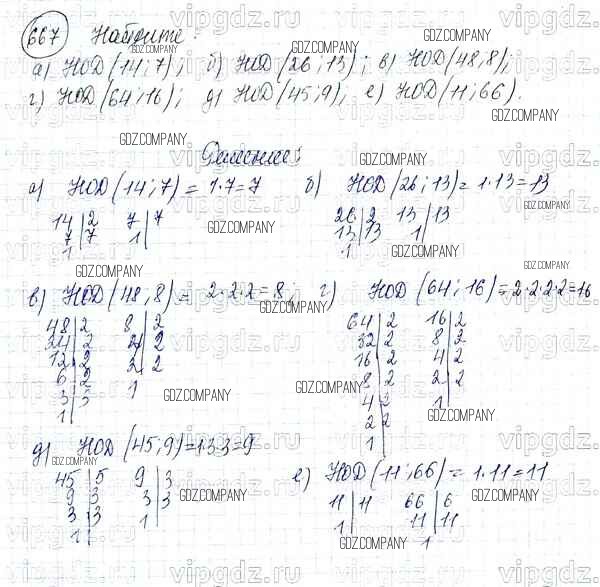 667 Найдите:
а) НОД (14; 7); б) НОД (26; 13); в) НОД (48, 8);
г) НОД (64; 16); д) НОД (45; 9), е) НОД (11; 66).
Решение:
а) НОД (14; 7) = 1·7=7
14|2 7|7
7|7 1|
1|
б) НОД (26; 13) = 1·13=13
26|2 13|13
13|13 1|
1
в) НОД (48, 8) = 2·2·2=8
48|2 8|2
24|2 4|2
12|2 2|2
6|2 1
3|3
1|
г) НОД (64; 16)=2·2·2·2=16
64|2 16|2
32|2 8|2
16|2 4|2
8|2 2|2
4|2 1|
2|2
1|
д) НОД (45; 9)=1·3·3=9
45|5 9|3
9|3 3|3
3|3 1|
1|
е) НОД (11; 66) = 1·11=11
11|11 66|6
1| 11|11
1
GDZ.COMPANY
vipgdz.ru